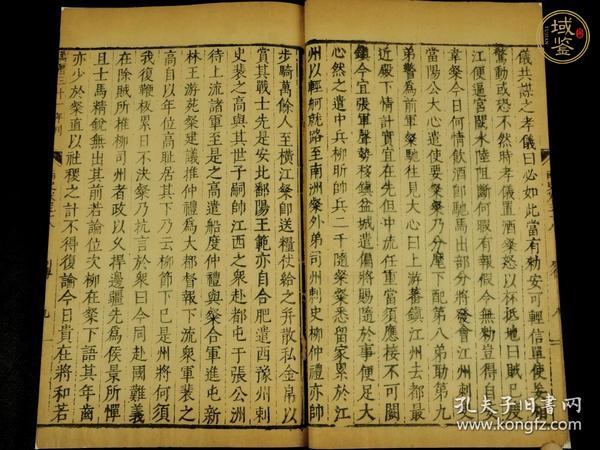 儀共謀之孝儀曰必如此當有勅安可輕信單使妄相
驚動或恐不然時孝儀置酒粲怒以杯抵地曰賊已度
江便逼宮闕水陸阻斷何暇有報假令無勅豈得自
韋粲今日何情飲酒即馳馬出部分將發會江州刺
當陽公大心遣使要粲粲乃分麾下配第八弟助第九
弟警為前軍粲馳往見大心曰上游蕃鎮江州去都最
近殿下情計實宜在先但中流任重當須應接不可闕
鎮今宜張軍聲勢移鎮湓城遣偏將賜隨於事便足大
心然之遣中兵柳昕帥兵二千隨粲粲悉留家累於江
州以輕舸就路至南洲粲外弟司州刺史柳仲禮亦帥
步騎萬餘人至橫江粲即送糧仗給之并散私金帛以
賞其戰士先是安北鄱陽王範亦自合肥遣西豫州刺
史裴之高與其世子嗣帥江西之衆赴都屯于張公洲
待上流諸軍至是之高遣船度仲禮與粲合軍進屯新
林王游苑粲建議推仲禮為大都督報下流衆軍裴之
高自以年位高恥居其下乃云柳節下已是州將何須
我復鞭板累日不決粲乃抗言於衆曰今同赴國難義
在除賊所推柳司州者政以久捍邊疆先為侯景所憚
且士馬精銳無出其前若論位次柳在粲下語其年齒
亦少於粲直以社稷之計不得復論今日貴在將和若
域鑒
孔夫子旧書网
book.kongfz.com